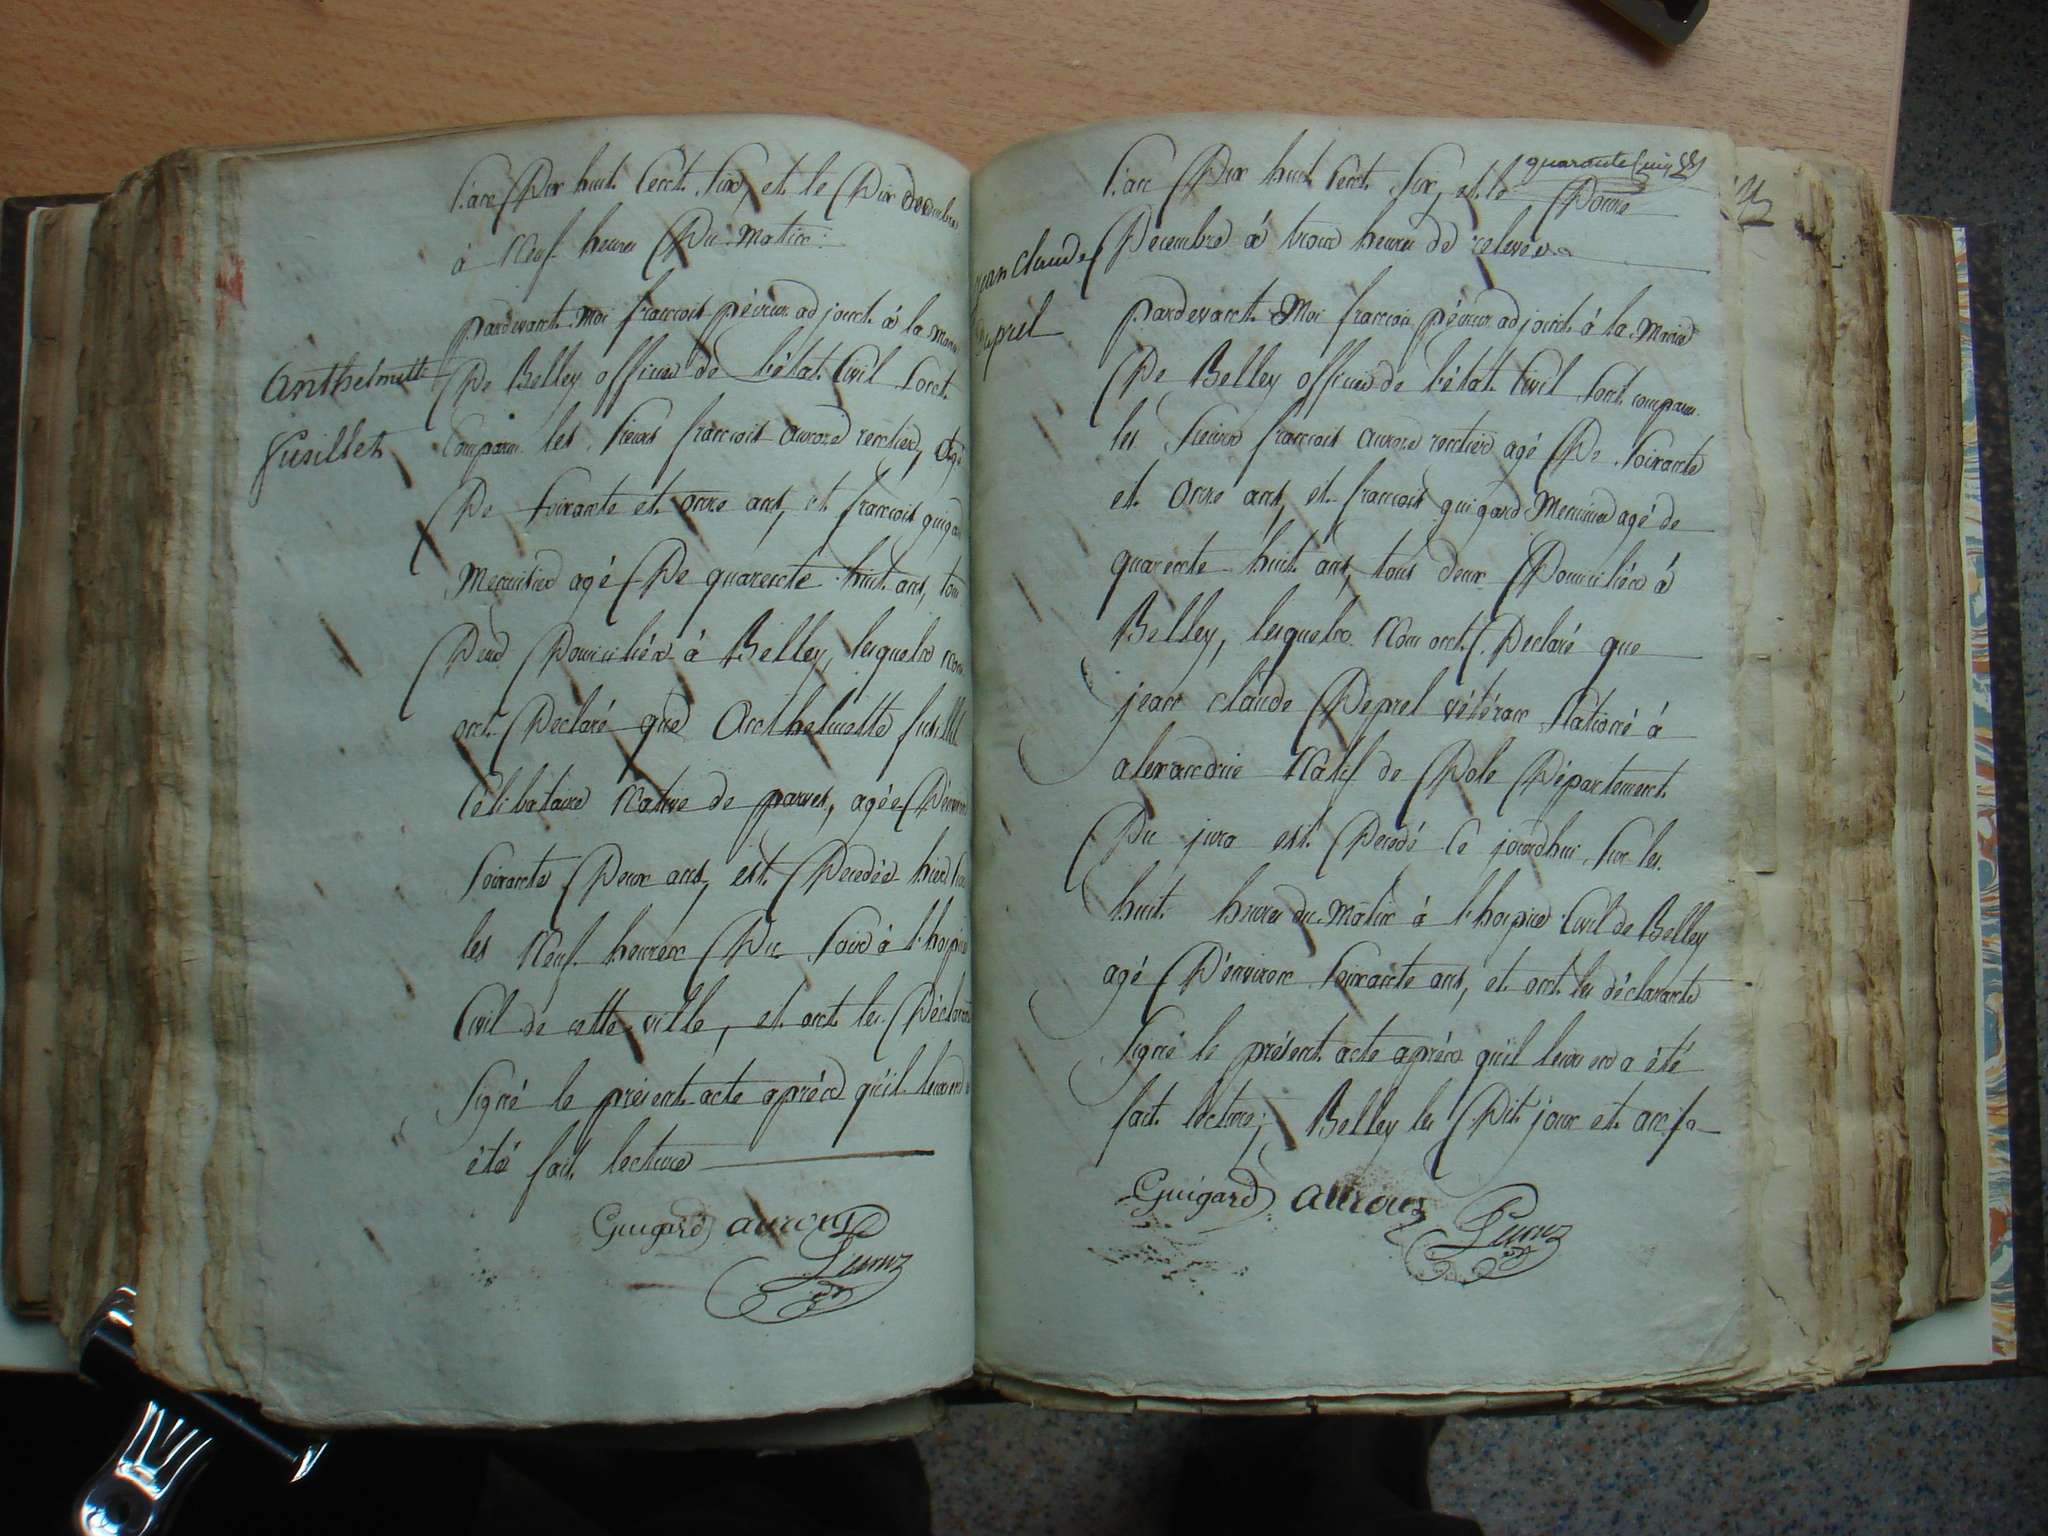 L'an Dix huit Cent Six, et le Dix Decembre
à Neuf heures Du Matin.
Anthelmette
Fusillet
pardevant Moi françois adjoint à la Mairie
De Belley officier de l'état Civil Sont
Comparu les Sieurs françois aurore rentier, agé
De Soixante et onze ans, et françois guigard
Menuisier agé De quarente huit ans, tous
Deux Domiciliés à Belley, lesquels nous
ont Declaré que Anthelmette fusillet
Célibataire Native de parves, agée D'environ
Soixante Deux ans, est Decedée hier Sur
les Neuf heures Du Soir à l'hospice
Civil de cette ville, et ont les Déclarants
Signé le présent acte après qu'il leur en a
été fait lecture
Guigard
quarante cinq
L'an Dix huit Cent Six, et le Douze
Decembre à trois heures de relevée
jean Claude
Deprel
pardevant Moi françois adjoint à la Mairie
De Belley officier de l'état Civil Sont comparu
les Sieurs françois aurore rentier agé De Soixante
et Onze ans, et françois guigard Menuisier agé de
quarente huit ans, tous deux Domiciliés à
Belley, lesquels Nous ont Declaré que
jean claude Deprel vétéran Stationé à
alexandrie Natif de Dole Département
Du jura est Decedé Ce jourdhui Sur les
huit heures du Matin à l'hospice Civil de Belley
agé D'environ Soixante ans, et ont les déclarants
Signé le présent acte après qu'il leur en a été
fait lecture; Belley les Dit jour et an
Guigard